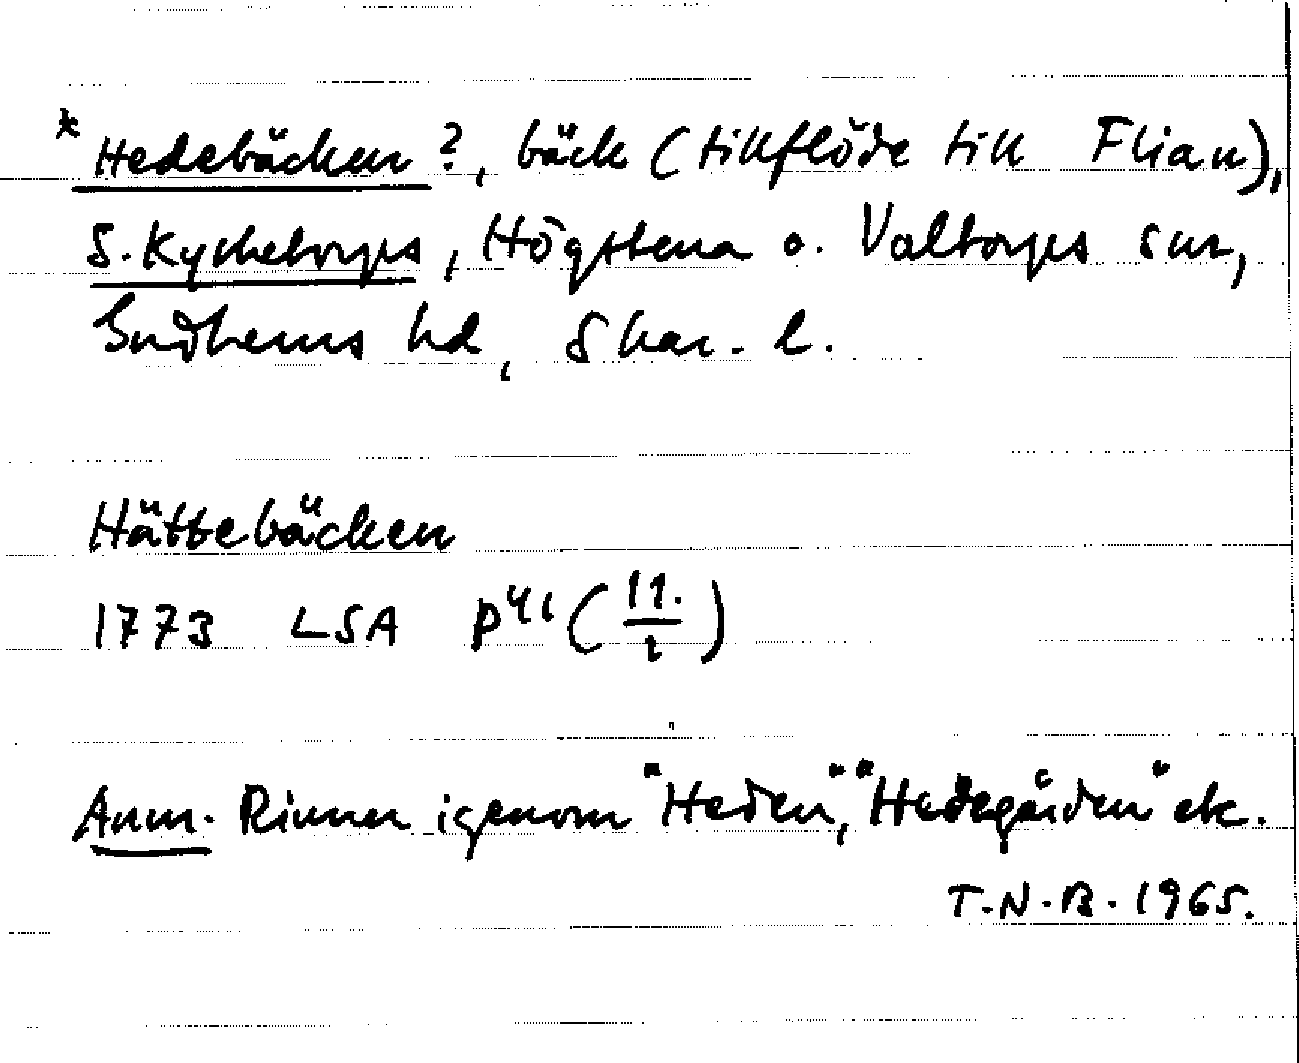 * Hedebäcken ?, bäck (tillflöde till Flian),
S. Kyrketorps, Högstena o. Valtorps snr,
Gudhems hd, Skar. l.
Hättebäcken
1773 LSA P41 (11./1)
Anm. Rinner igenom "Heden", "Hedegärden" etc.
T.N.B. 1965.